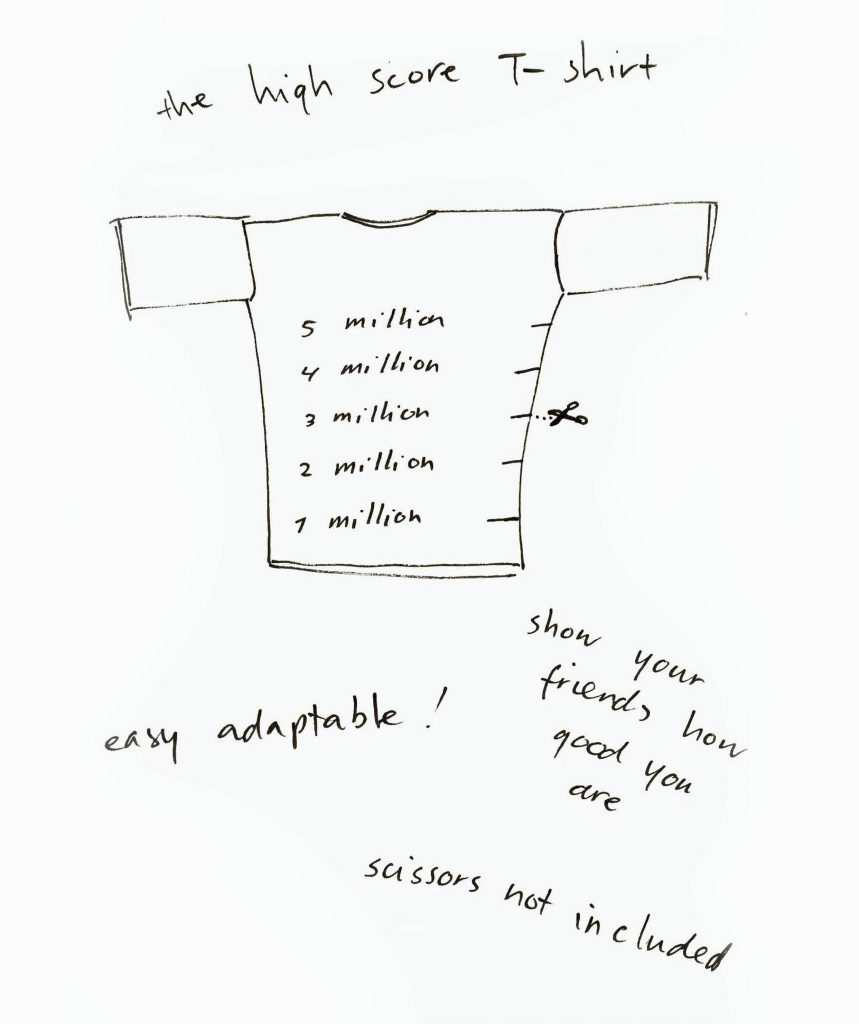 the high score T-shirt
5 million
4 million
3 million
2 million
1 million
easy adaptable!
show your
friends how
good you
are
scissors not included